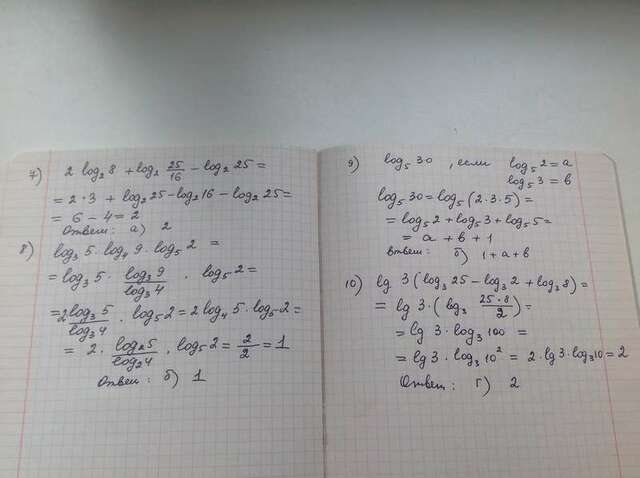 7) 2 log₂8 + log₂ 25/16 − log₂ 25 =
= 2·3 + log₂25 − log₂16 − log₂ 25 =
= 6 − 4 = 2
Ответ: а) 2
8) log₃5 · log₄9 · log₅2 =
= log₃5 · log₃9/log₃4 · log₅2 =
= 2 log₃5/log₃4 · log₅2 = 2 log₄5 · log₅2 =
= 2 · log₂5/log₂4 · log₅2 = 2/2 = 1
Ответ: б) 1
9) log₅30, если log₅2 = a
log₅3 = b
log₅30 = log₅(2·3·5) =
= log₅2 + log₅3 + log₅5 =
= a + b + 1
Ответ: б) 1 + a + b
10) lg 3 (log₃25 − log₃2 + log₃8) =
= lg 3 · (log₃ 25·8/2) =
= lg 3 · log₃ 100 =
= lg 3 · log₃ 10² = 2·lg 3·log₃10 = 2
Ответ: г) 2